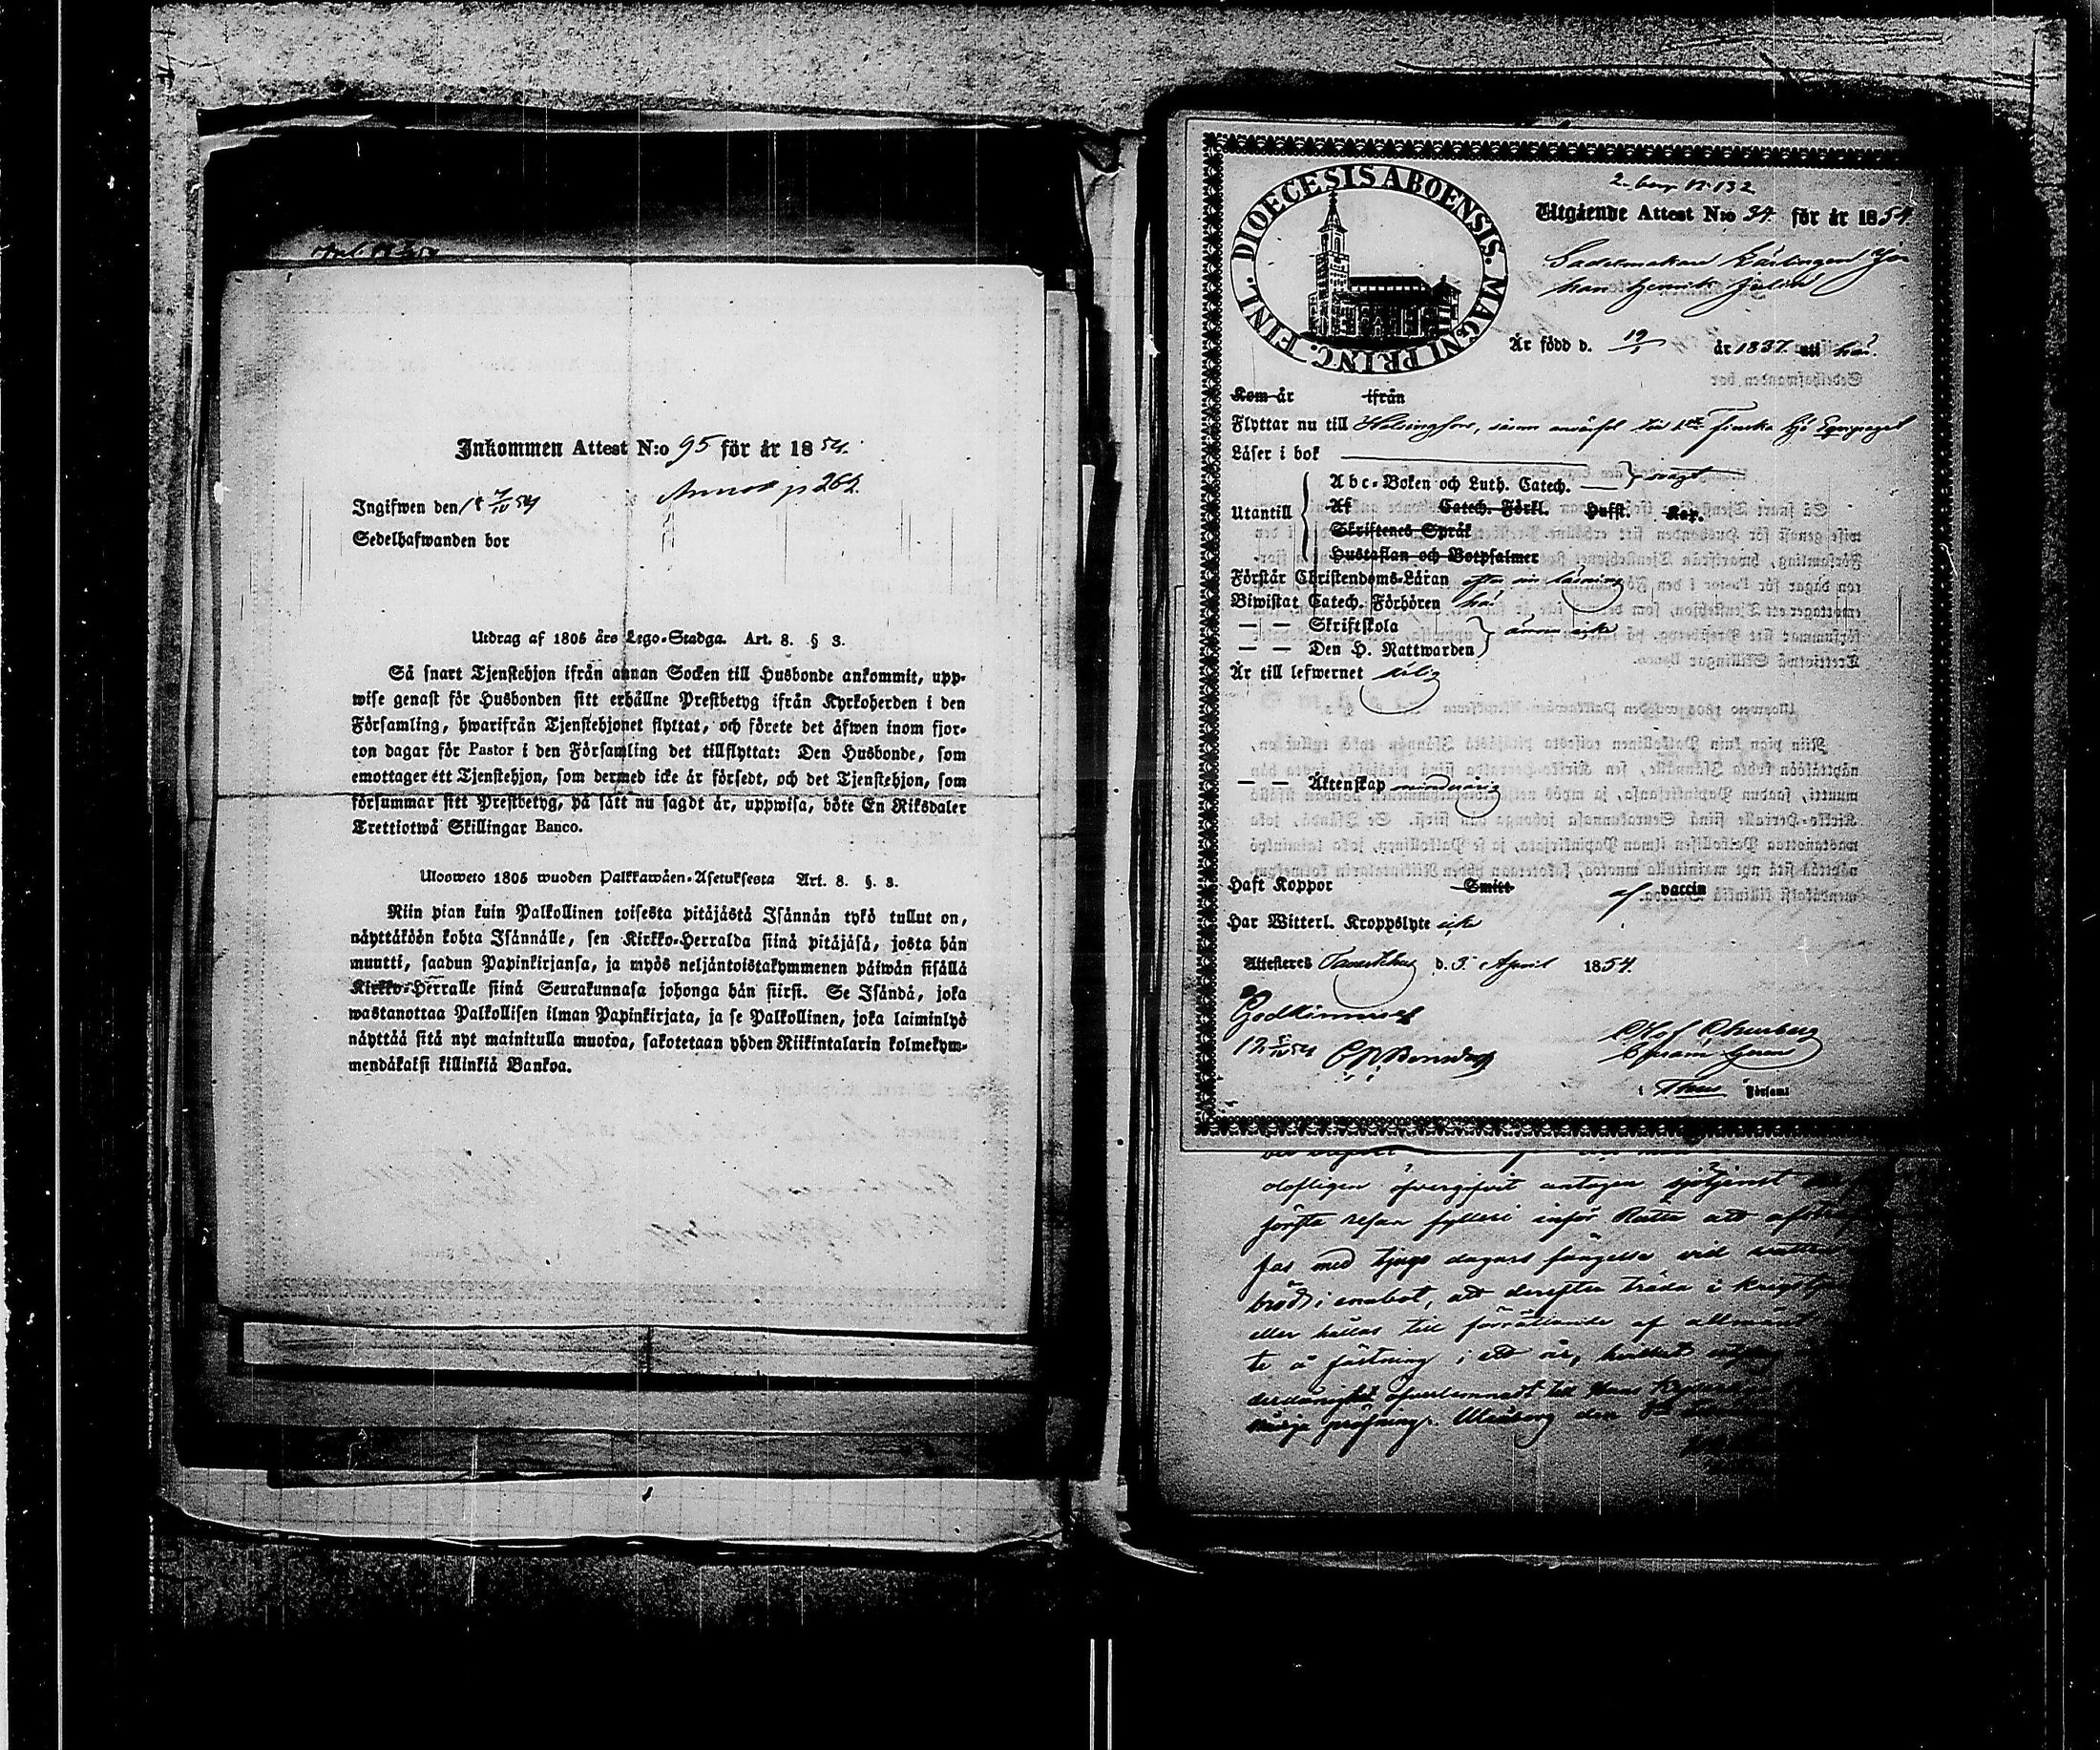 Inkommen Attest N:o 95 för år 1854.
Ingifwen den 18 7/IV 54
Annot p 262.
Sedelhafwanden bor
Utdrag af 1805 års Lego-Stadga. Art. 8. § 3.
Så snart Tjenstehjon ifrån annan Socken till Husbonde ankommit, upp-
wise genast för Husbonden sitt erhållne Prestbetyg ifrån Kyrkoherden i den
Församling, hwarifrån Tjenstehjonet flyttat, och förete det äfwen inom fjor-
ton dagar för Pastor i den Församling det tillflyttat: Den Husbonde, som
emottager ett Tjenstehjon, som dermed icke är försedt, och det Tjenstehjon, som
försummar sitt Prestbetyg, på sätt nu sagdt är, uppwisa, böte En Riksdaler
Trettiotwå Skillingar Banco.
Uloosweto 1805 wuoden Palkkawäen-Asetuksesta Art. 8. §. 3.
Niin pian kuin Palkollinen toisesta pitäjästä Isännän tykö tullut on,
näyttäköön kohta Isännälle, sen Kirkko-Herralda siinä pitäjäsä, josta hän
muutti, saadun Papinkirjansa, ja myös neljäntoistakymmenen päiwän sisällä
Kirkko-Herralle siinä Seurakunnasa johonga hän siirsi. Se Isändä, joka
wastanottaa Palkollisen ilman Papinkirjata, ja se Palkollinen, joka laiminlyö
näyttää sitä nyt mainitulla muotoa, sakotetaan yhden Riikintalarin kolmekym-
mendäkaksi killinkiä Bankoa.
DIOECESIS ABOENSIS. MAGNI PRINC. FINL.
2. 132
Utgående Attest N:o 34. för år 1854
Sadelmakare Lärlingen Jo
han Henrik Julin
Är född d. 19/1 år 1837. uti här.
Kom år ifrån
Flyttar nu till Helsingfors, såsom antagen till Finska Sjö Equipaget
Läser i bok
Abc-Boken och Luth. Catech. — swagt
Utantill
Af Catech. Förkl. Hufst. Kap.
Skriftenes Språk
Hustaflan och Botpsalmer
Förstår Christendoms-Läran efter sin läsning
Biwistat Catech. Förhören här
— — Skriftskola
ännu icke
— — Den H. Nattwarden
Är till lefwernet ärlig
— — Äktenskap minderårig
Haft Koppor Smitt af vaccin
Har Witterl. Kroppslyte icke
Attesteras Tavastehus d. 3 April 1854.
Godkännes
i Församl
doftligen öfvergifvit antagen sjötjenst
första resan fylleri inför Rätta att afstraf
fas med tjugo dagars fängelse vid vatten
bröd i enebot, att derefter träda i krigstjen
eller hållas till förrättande af allmänt
te å fästning i ett år, hvilket
öfverlemnadt till Hans
nådiga pröfning. Uleåborg den